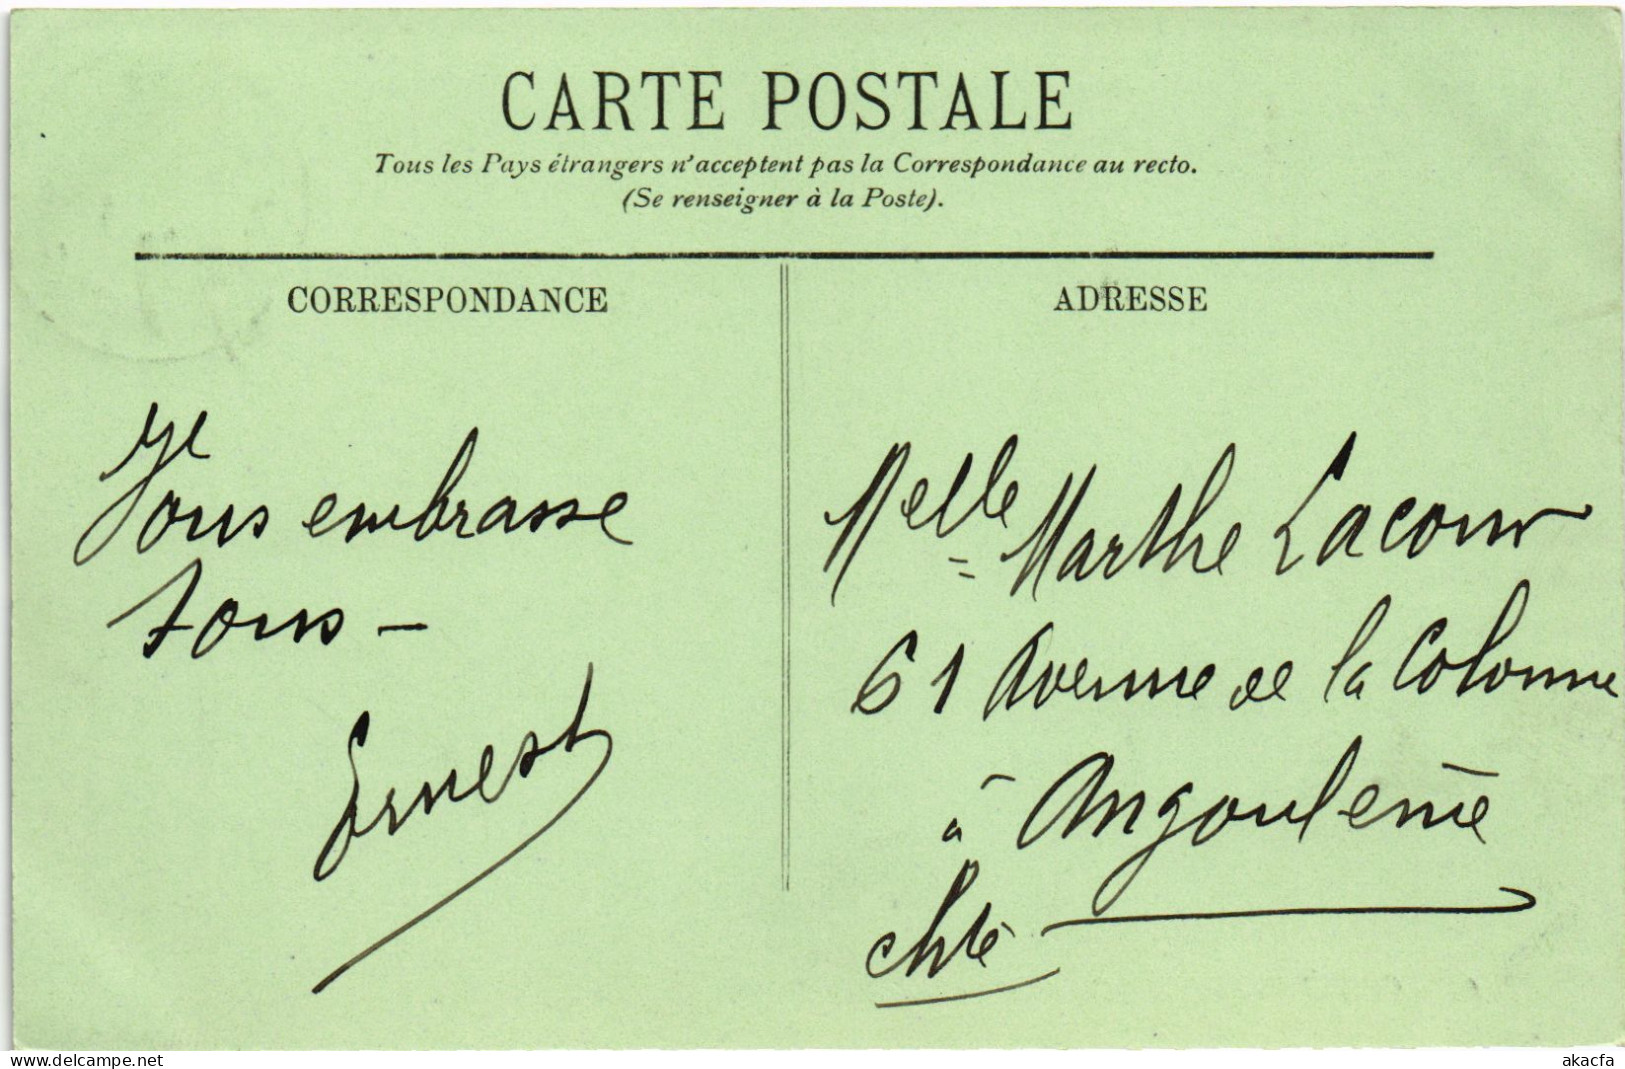 CARTE POSTALE
Tous les Pays étrangers n'acceptent pas la Correspondance au recto.
(Se renseigner à la Poste).
CORRESPONDANCE
Je
vous embrasse
tous —
Ernest
ADRESSE
Melle Marthe Lacour
61 Avenue de la Colonne
à Angoulême
Chte
www.delcampe.net
akacfa